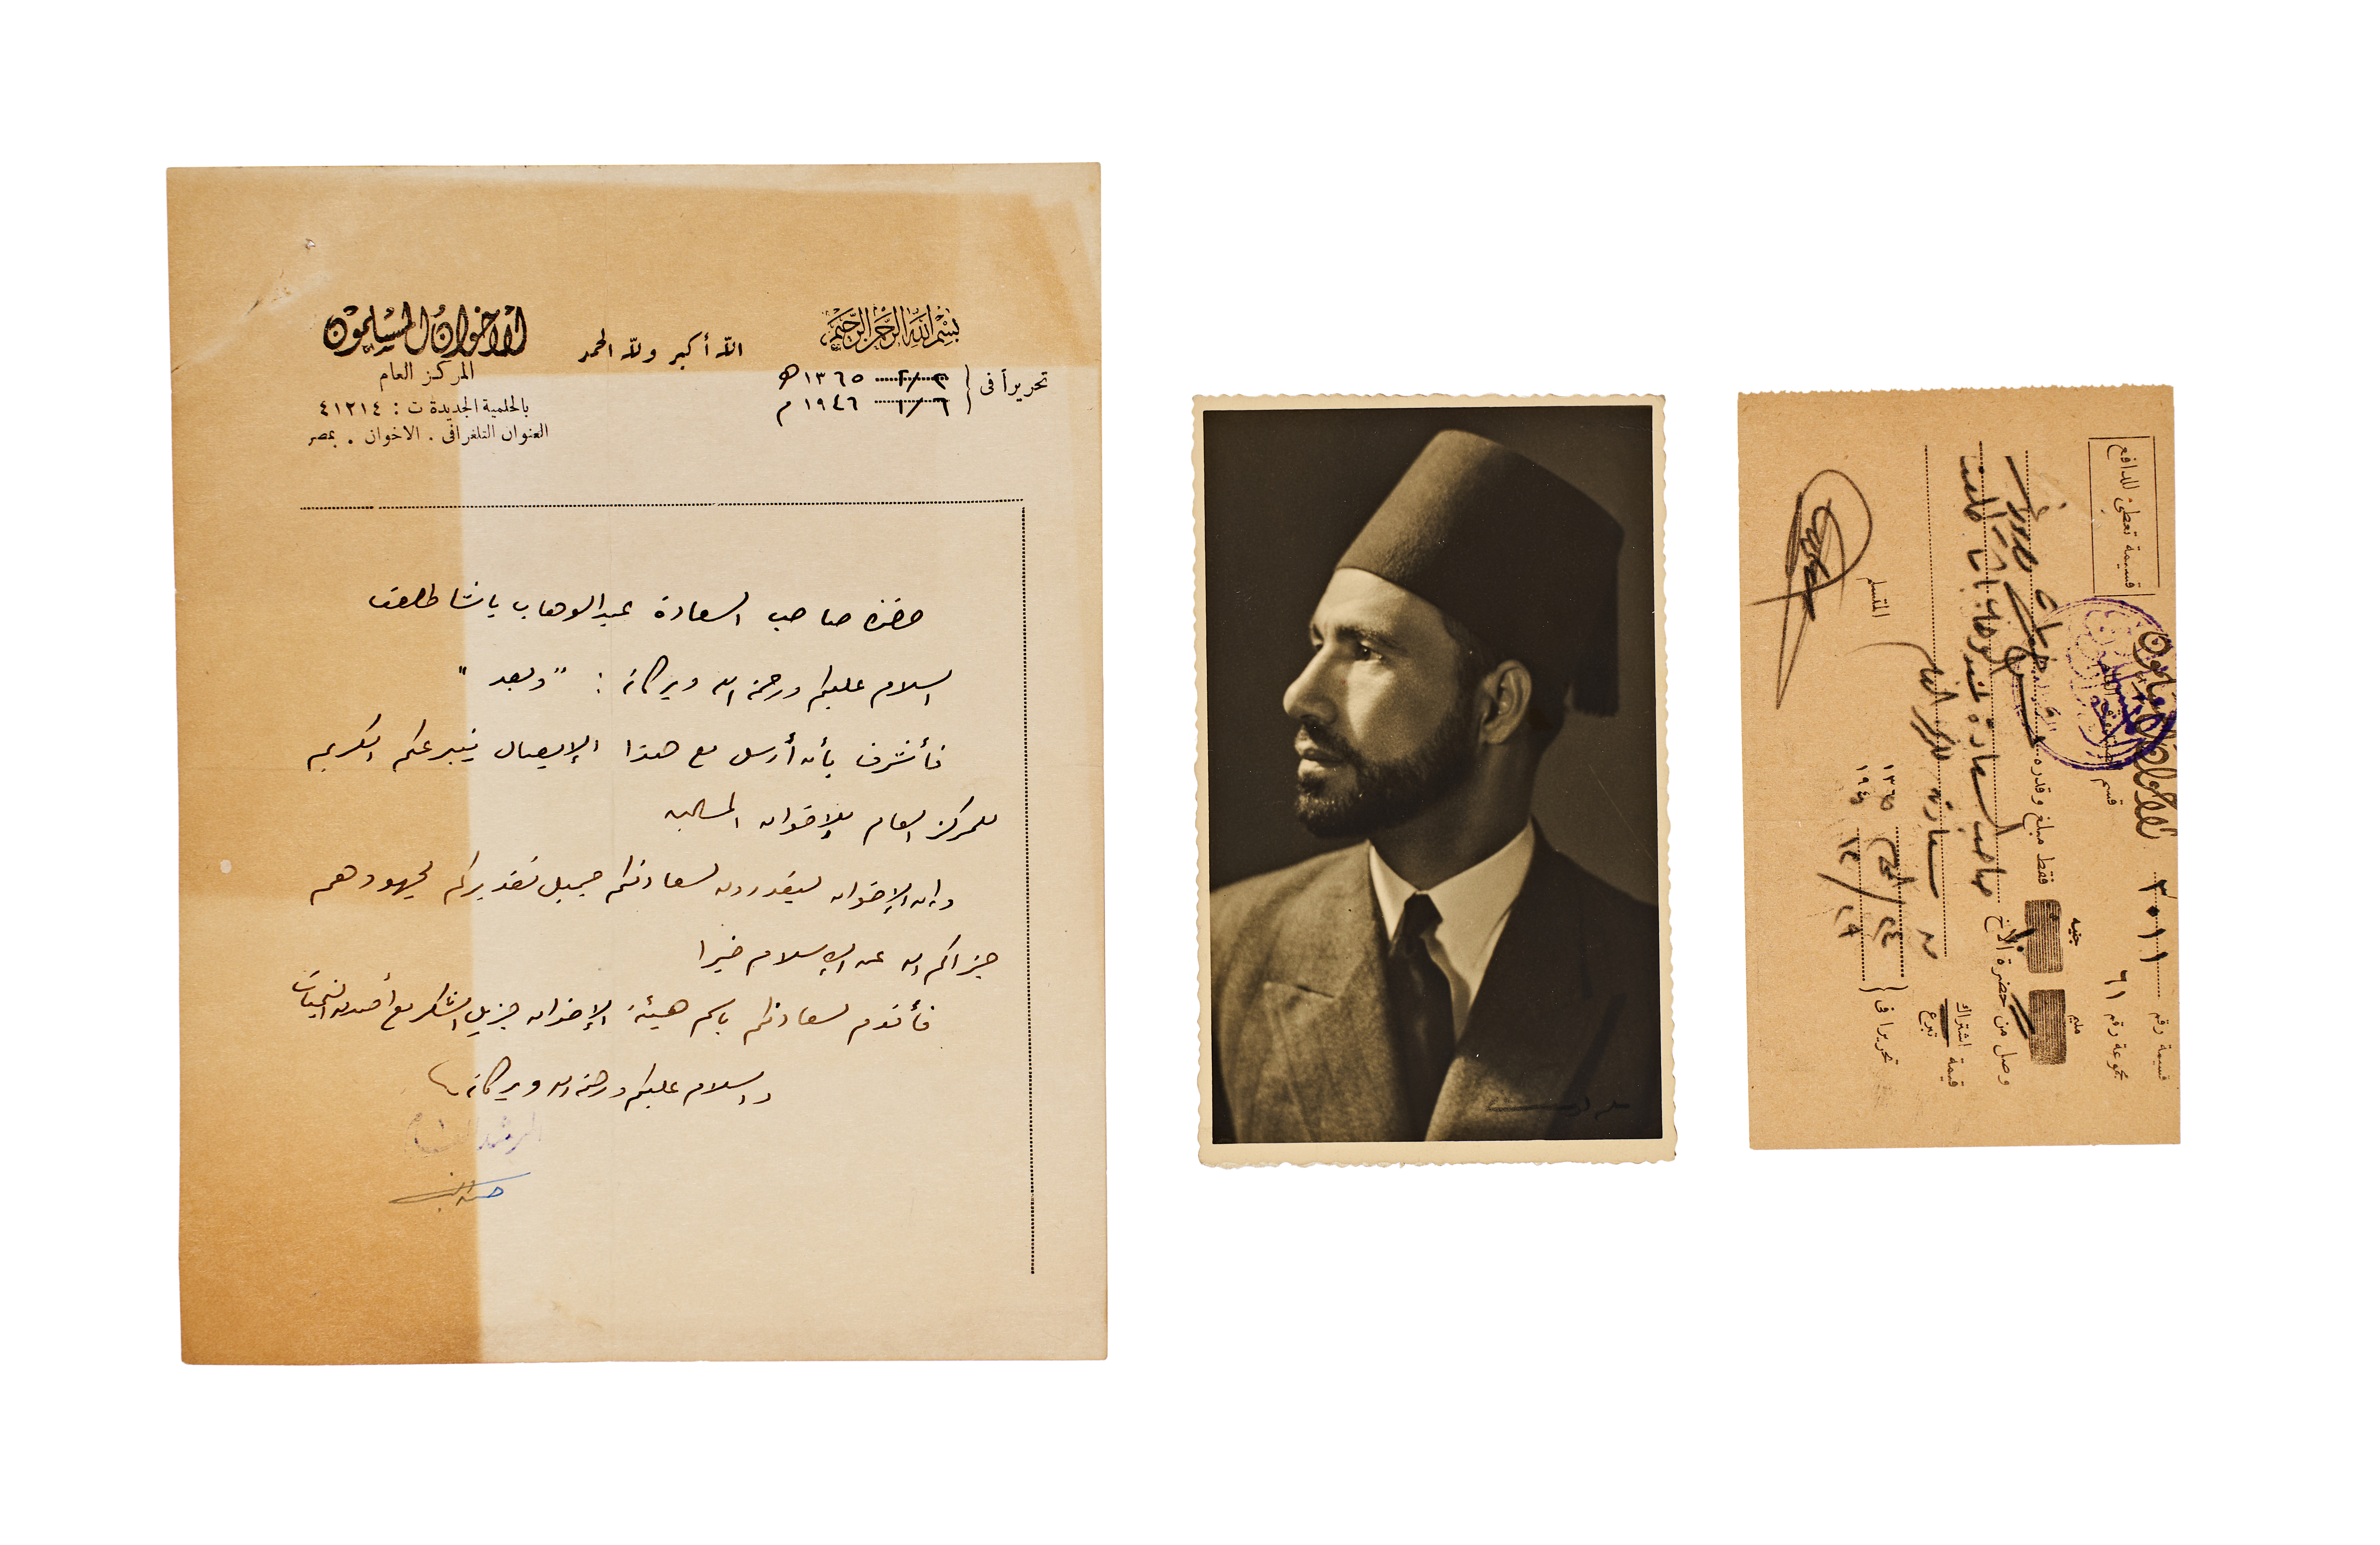 بسم الله الرحمن الرحيم
الله أكبر ولله الحمد
الاخوان المسلمون
المركز العام
بالحلمية الجديدة ت : ٤١٢١٤
العنوان التلغرافى . الاخوان . بمصر
تحريراً فى
٢/٢ ١٣٦٥ هـ
٦/١ ١٩٤٦ م
حضرة صاحب السعادة عبد الوهاب باشا طلعت
السلام عليكم ورحمة الله وبركاته : " وبعد "
فأتشرف بأن أرسل مع هذا الإيصال بتبرعكم الكريم
للمركز العام للإخوان المسلمين
وإن الإخوان ليقدرون لسعادتكم جميل تقديركم لجهودهم
جزاكم الله عن الإسلام خيرا
فأقدم لسعادتكم باسم هيئة الإخوان جزيل الشكر مع أصدق التحيات
والسلام عليكم ورحمة الله وبركاته
المرشد العام
حسن البنا
قسيمة تعطى للدافع
الاخوان المسلمون
قسيمة رقم ٣٠١١
مجموعة رقم ٦١
قسم
مليم جنيه
فقط مبلغ وقدره
وصل من حضرة الأخ صاحب السعادة عبد الوهاب باشا طلعت
قيمة اشتراك
تبرع
للمركز العام
تحريرا فى ٢٤ محرم ١٣٦٥
٢٩/١٢ ١٩٤٥
المستلم